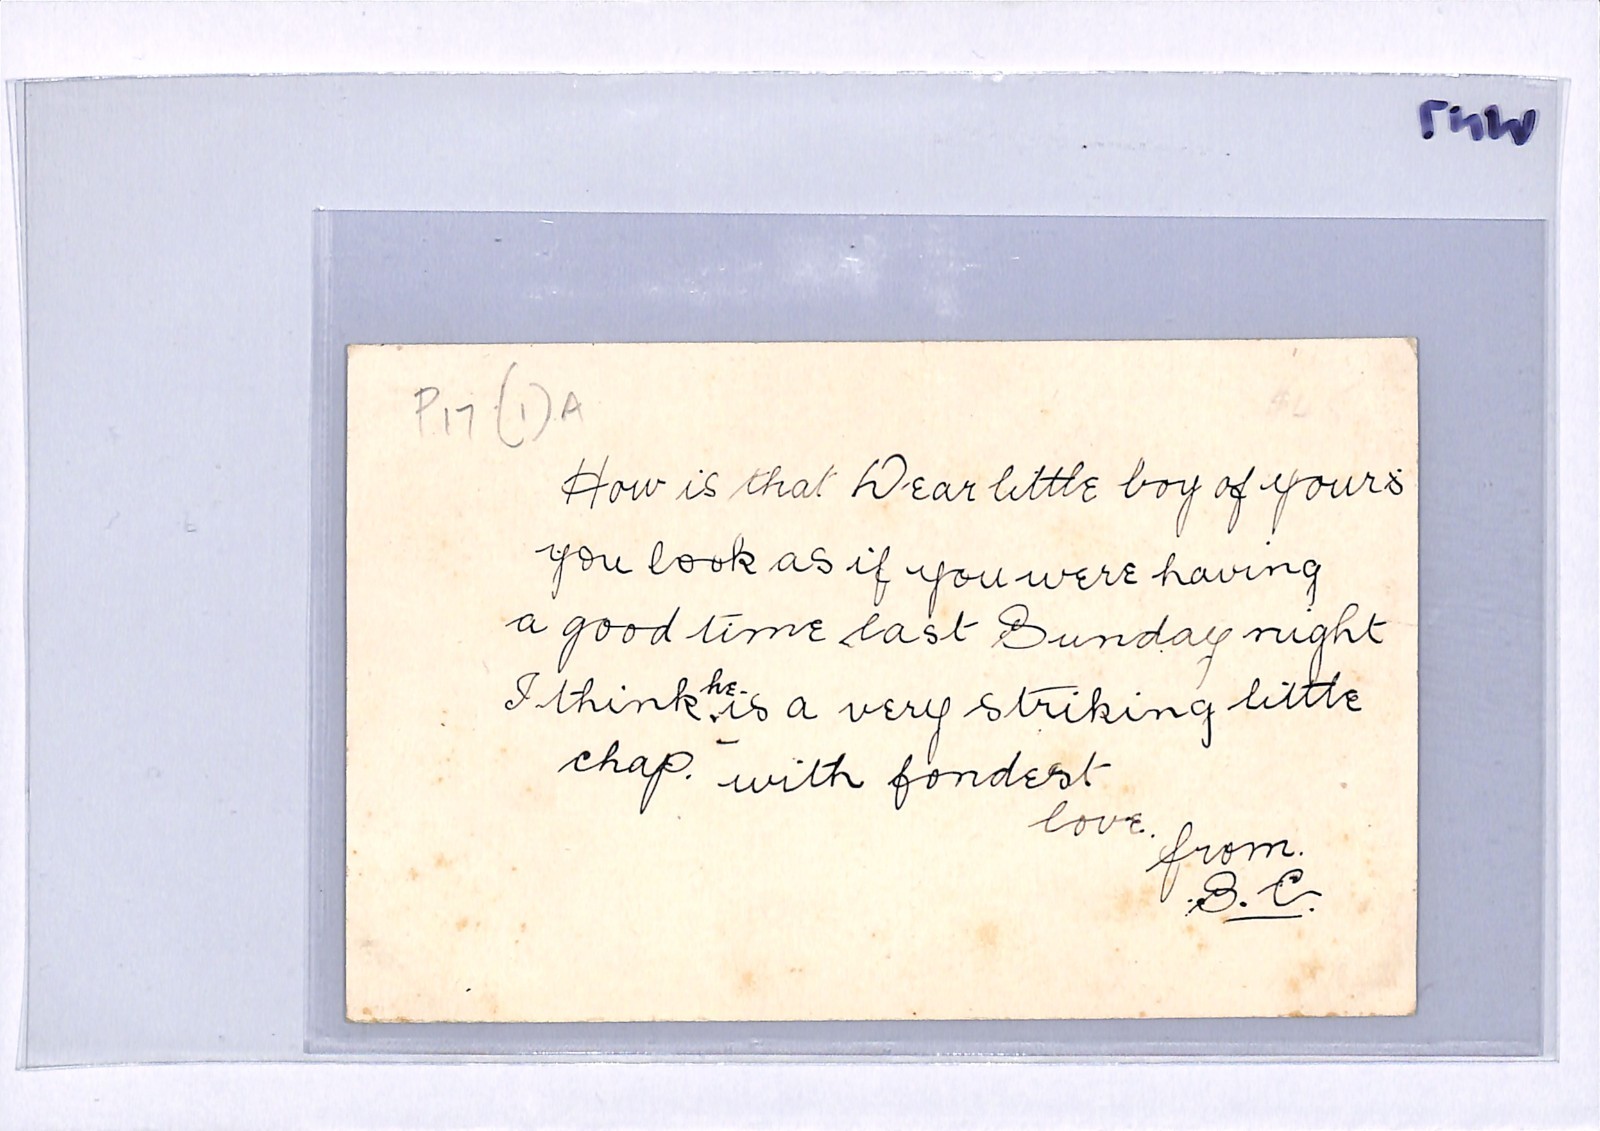 P.17 (1) A
How is that Dear little boy of yours
you look as if you were having
a good time last Sunday night
I think he is a very striking little
chap. with fondest
love.
from.
B. C.